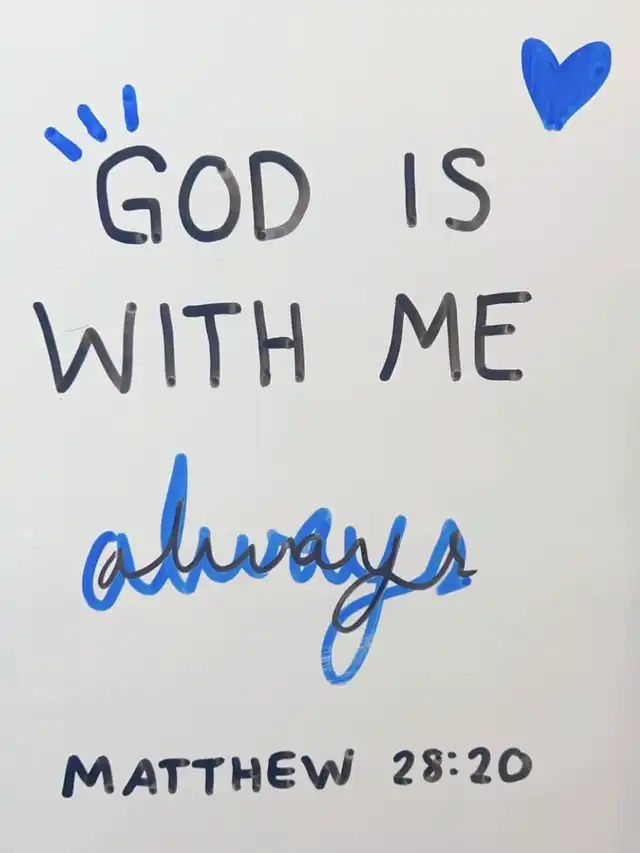 GOD IS
WITH ME
always
MATTHEW 28:20